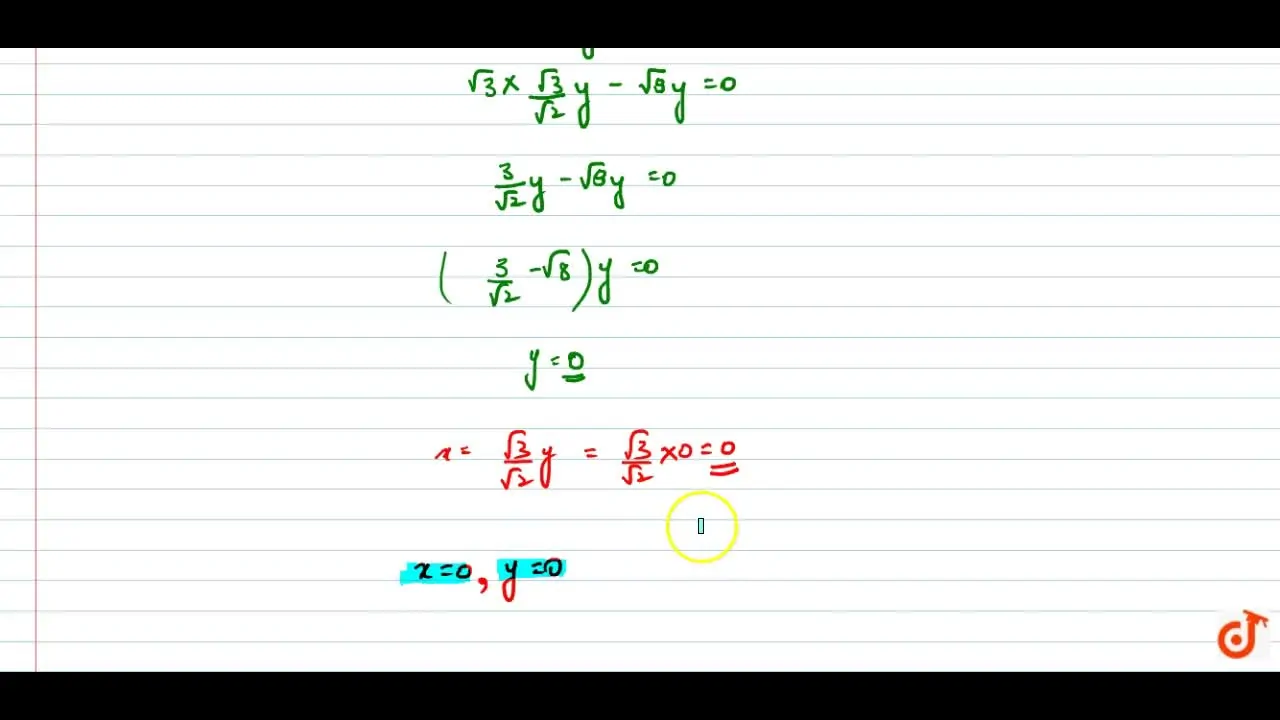 √3 × √3/√2 y - √8y = 0
3/√2 y - √8y = 0
( 3/√2 - √8 ) y = 0
y = 0
x = √3/√2 y = √3/√2 × 0 = 0
x = 0, y = 0